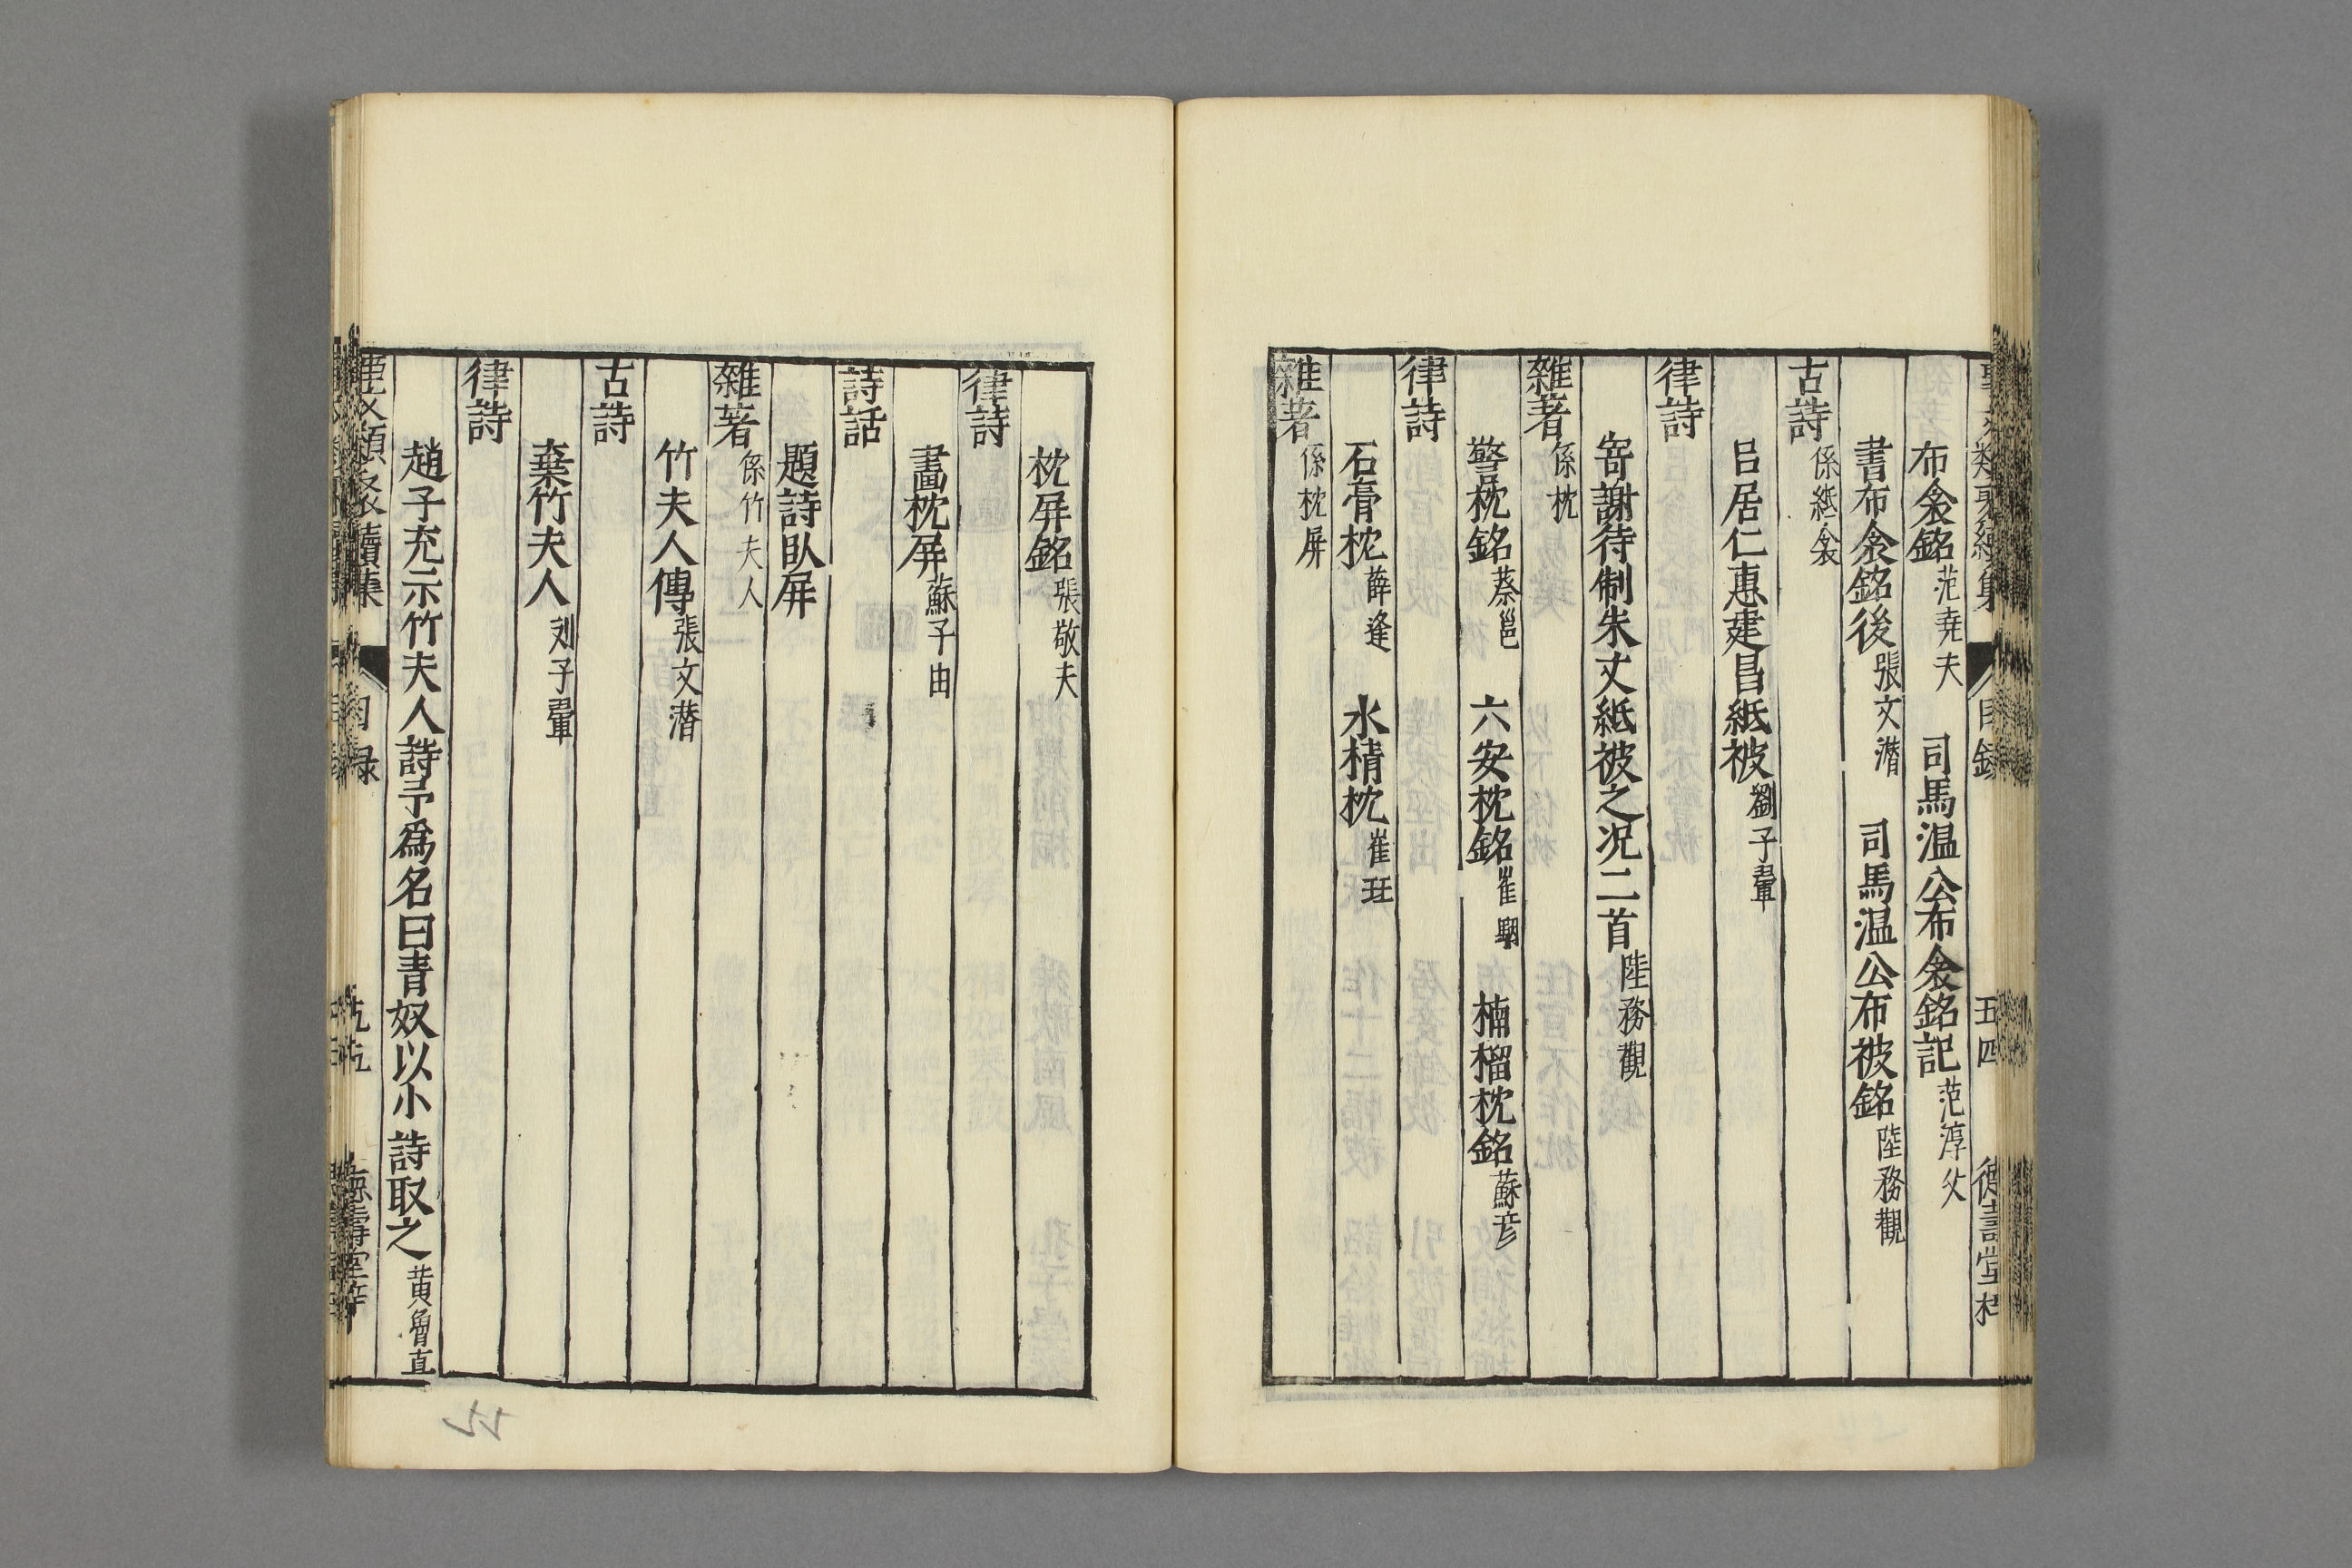 布衾銘范堯夫 司馬温公布衾銘記范淳父
書布衾銘後張文潜 司馬温公布被銘陸務觀
古詩係紙衾
吕居仁惠建昌紙被劉子翬
律詩
寄謝待制朱丈紙被之况二首陸務觀
雜著係枕
警枕銘蔡邕 六安枕銘崔駰 楠榴枕銘蘇彦
律詩
石膏枕薛逢 水精枕崔珏
雜著係枕屏
枕屏銘張敬夫
律詩
畫枕屏蘇子由
詩話
題詩臥屏
雜著係竹夫人
竹夫人傳張文潜
古詩
棄竹夫人刘子翬
律詩
趙子充示竹夫人詩予爲名曰青奴以小詩取之黄魯直